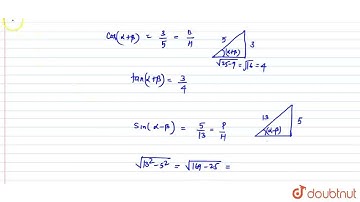 Cos(α+β) = 3/5 = B/H
5
3
(α+β)
√25-9 = √16 = 4
tan(α+β) = 3/4
Sin(α-β) = 5/13 = P/H
13
5
(α-β)
√13²-5² = √169-25 =
doubtnut